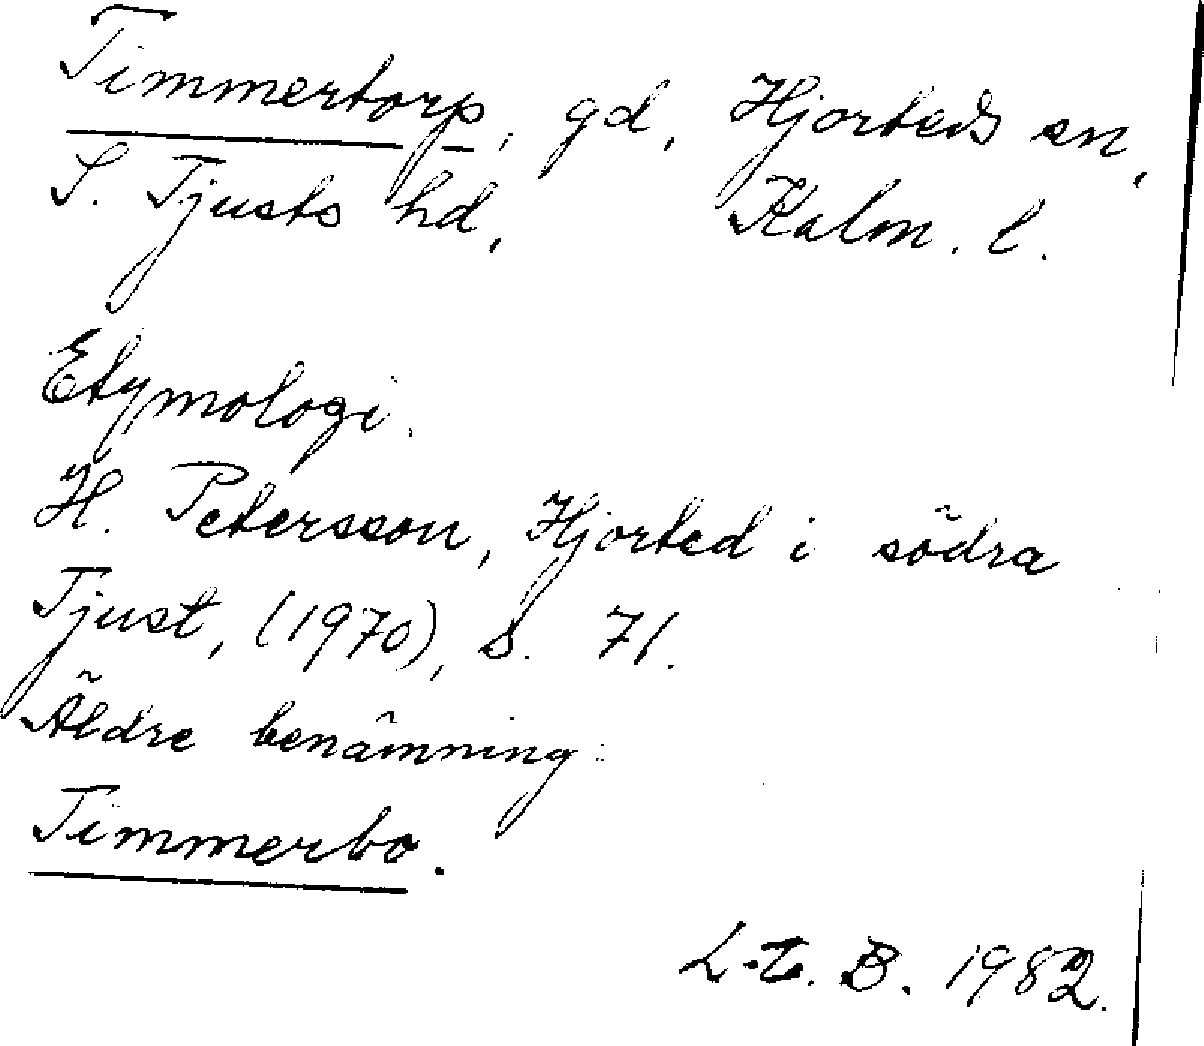 Timmertorp, gd, Hjorteds sn,
S. Tjusts hd, Kalm. l.
Etymologi.
H. Petersson, Hjorted i södra
Tjust, (1970), s. 71.
Äldre benämning:
Timmerbo.
B. 1982.